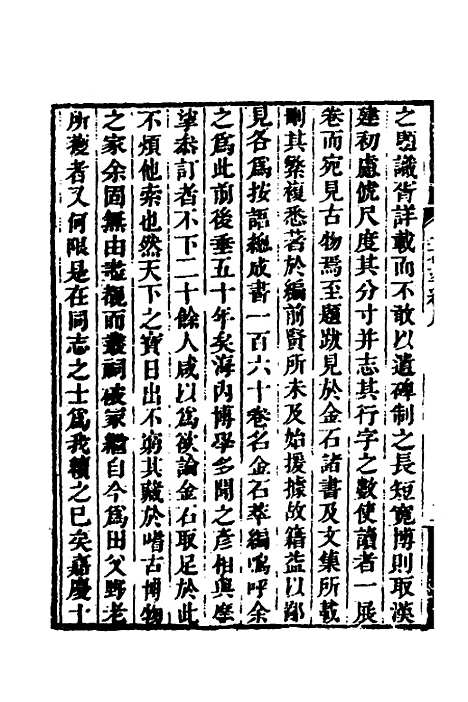 之題識皆詳載而不敢以遺碑制之長短寬博則取漢
建初慮俿尺度其分寸并志其行字之數使讀者一展
卷而宛見古物焉至題跋見於金石諸書及文集所載
刪其繁複悉著於編前賢所未及始援據故籍益以鄙
見各為按語總成書一百六十卷名金石萃編嗚呼余
之為此前後垂五十年矣海內博學多聞之彥相與摩
挲參訂者不下二十餘人咸以為欲論金石取足於此
不煩他索也然天下之寶日出不窮其藏於嗜古博物
之家余固無由盡覩而叢祠破冢繼自今為田父野老
所獲者又何限是在同志之士為我續之已矣嘉慶十